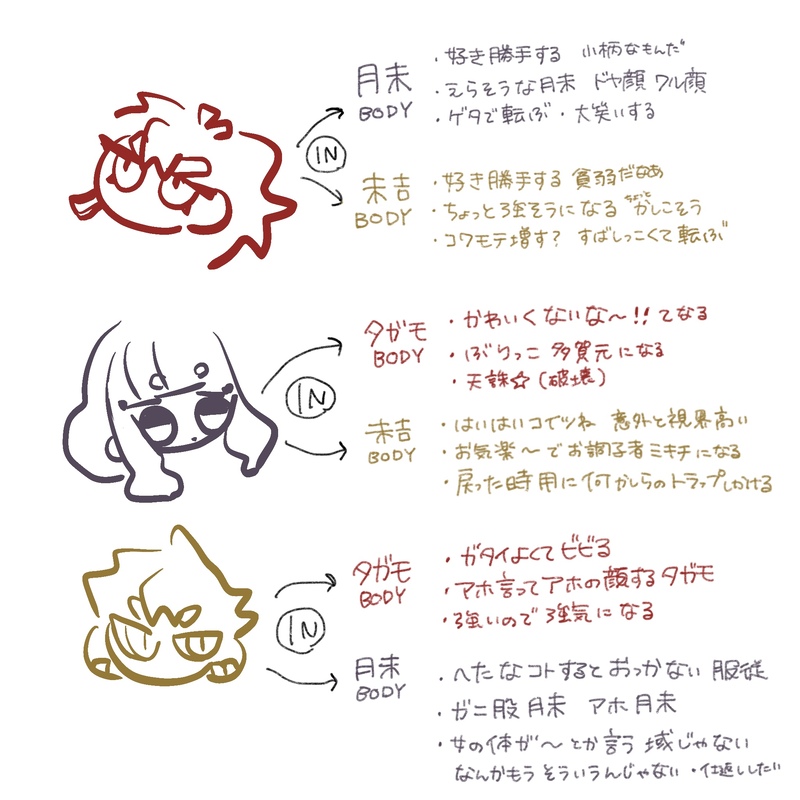 月未
BODY
・好き勝手する 小柄なもんだ
・えらそうな月未 ドヤ顔 ワル顔
・ゲタで転ぶ・大笑いする
IN
未吉
BODY
・好き勝手する 貧弱だなぁ
・ちょっと強そうになる かしこそう
・コワモテ増す? すばしっこくて転ぶ
タガモ
BODY
・かわいくないな〜!!てなる
・ぶりっこ 多賀元になる
・天誅☆(破壊)
IN
未吉
BODY
・はいはいコイツね 意外と視界高い
・お気楽〜でお調子者ミキチになる
・戻った時用に何かしらのトラップしかける
タガモ
BODY
・ガタイよくてビビる
・アホ言ってアホの顔するタガモ
・強いので強気になる
IN
月未
BODY
・へたなコトするとおっかない 服従
・ガニ股月未 アホ月未
・女の体が〜とか言う域じゃない
なんかもうそういうんじゃない・仕返ししたい